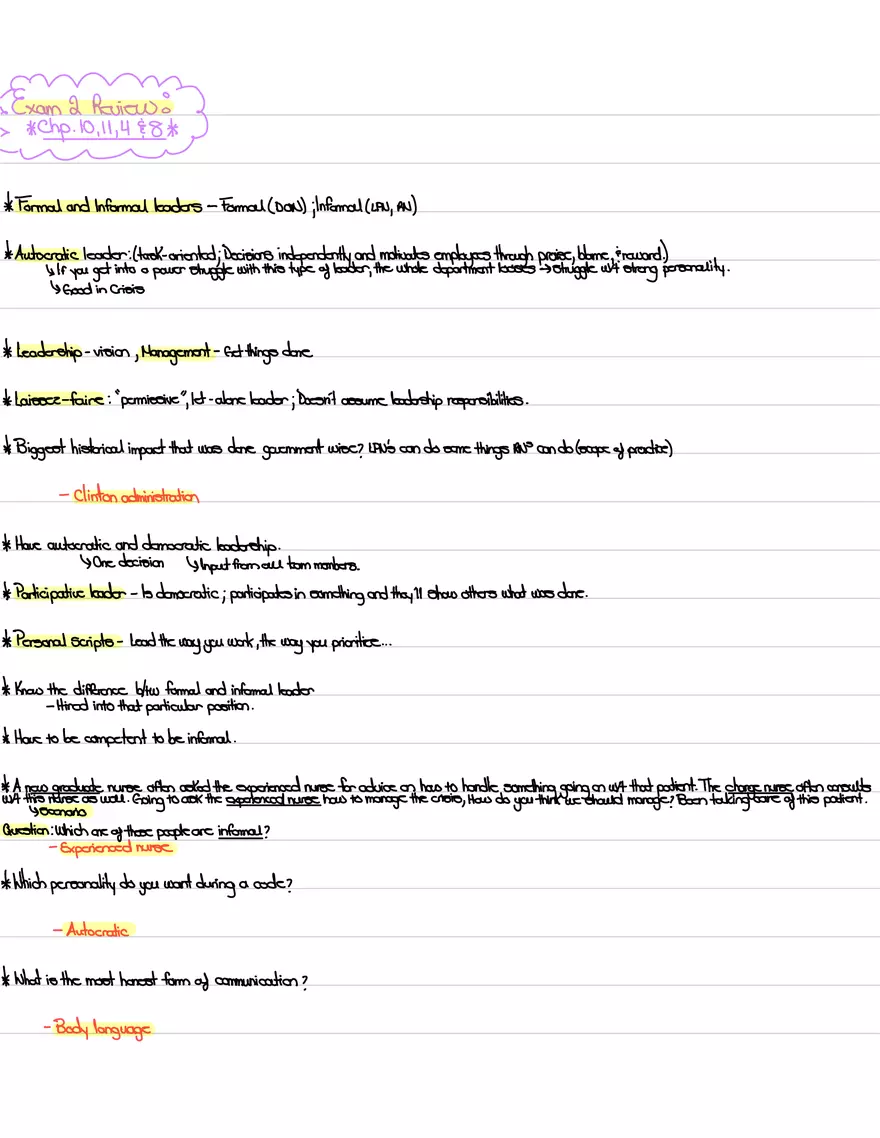 Exam 2 Review:
*Chp. 10, 11, 4 & 8*
* Formal and Informal leaders - Formal (DON) ; Informal (LPN, RN)
* Autocratic leader: (task-oriented; Decisions independently and motivates employees through praise, blame, & reward.)
↳ If you get into a power struggle with this type of leader, the whole department losses → struggle w/ strong personality.
↳ Good in Crisis
* Leadership - vision, Management - Get things done
* Laissez-faire: "permissive", let-alone leader; Doesn't assume leadership responsibilities.
* Biggest historical impact that was done government wise? LPN's can do some things RN's can do (scope of practice)
- Clinton administration
* Have autocratic and democratic leadership.
↳ One decision ↳ Input from all team members.
* Participative leader - Is democratic; participates in something and they'll show others what was done.
* Personal Scripts - Lead the way you work, the way you prioritize...
* Know the difference b/tw formal and informal leader
- Hired into that particular position.
* Have to be competent to be informal.
* A new graduate nurse often asked the experienced nurse for advice on how to handle something going on w/ that patient. The charge nurse often consults
w/ this nurse as well. Going to ask the experienced nurse how to manage the crisis, How do you think we should manage? Been taking care of this patient.
↳ Scenario
Question: Which one of these people are informal?
- Experienced nurse
* Which personality do you want during a code?
- Autocratic
* What is the most honest form of communication?
- Body language